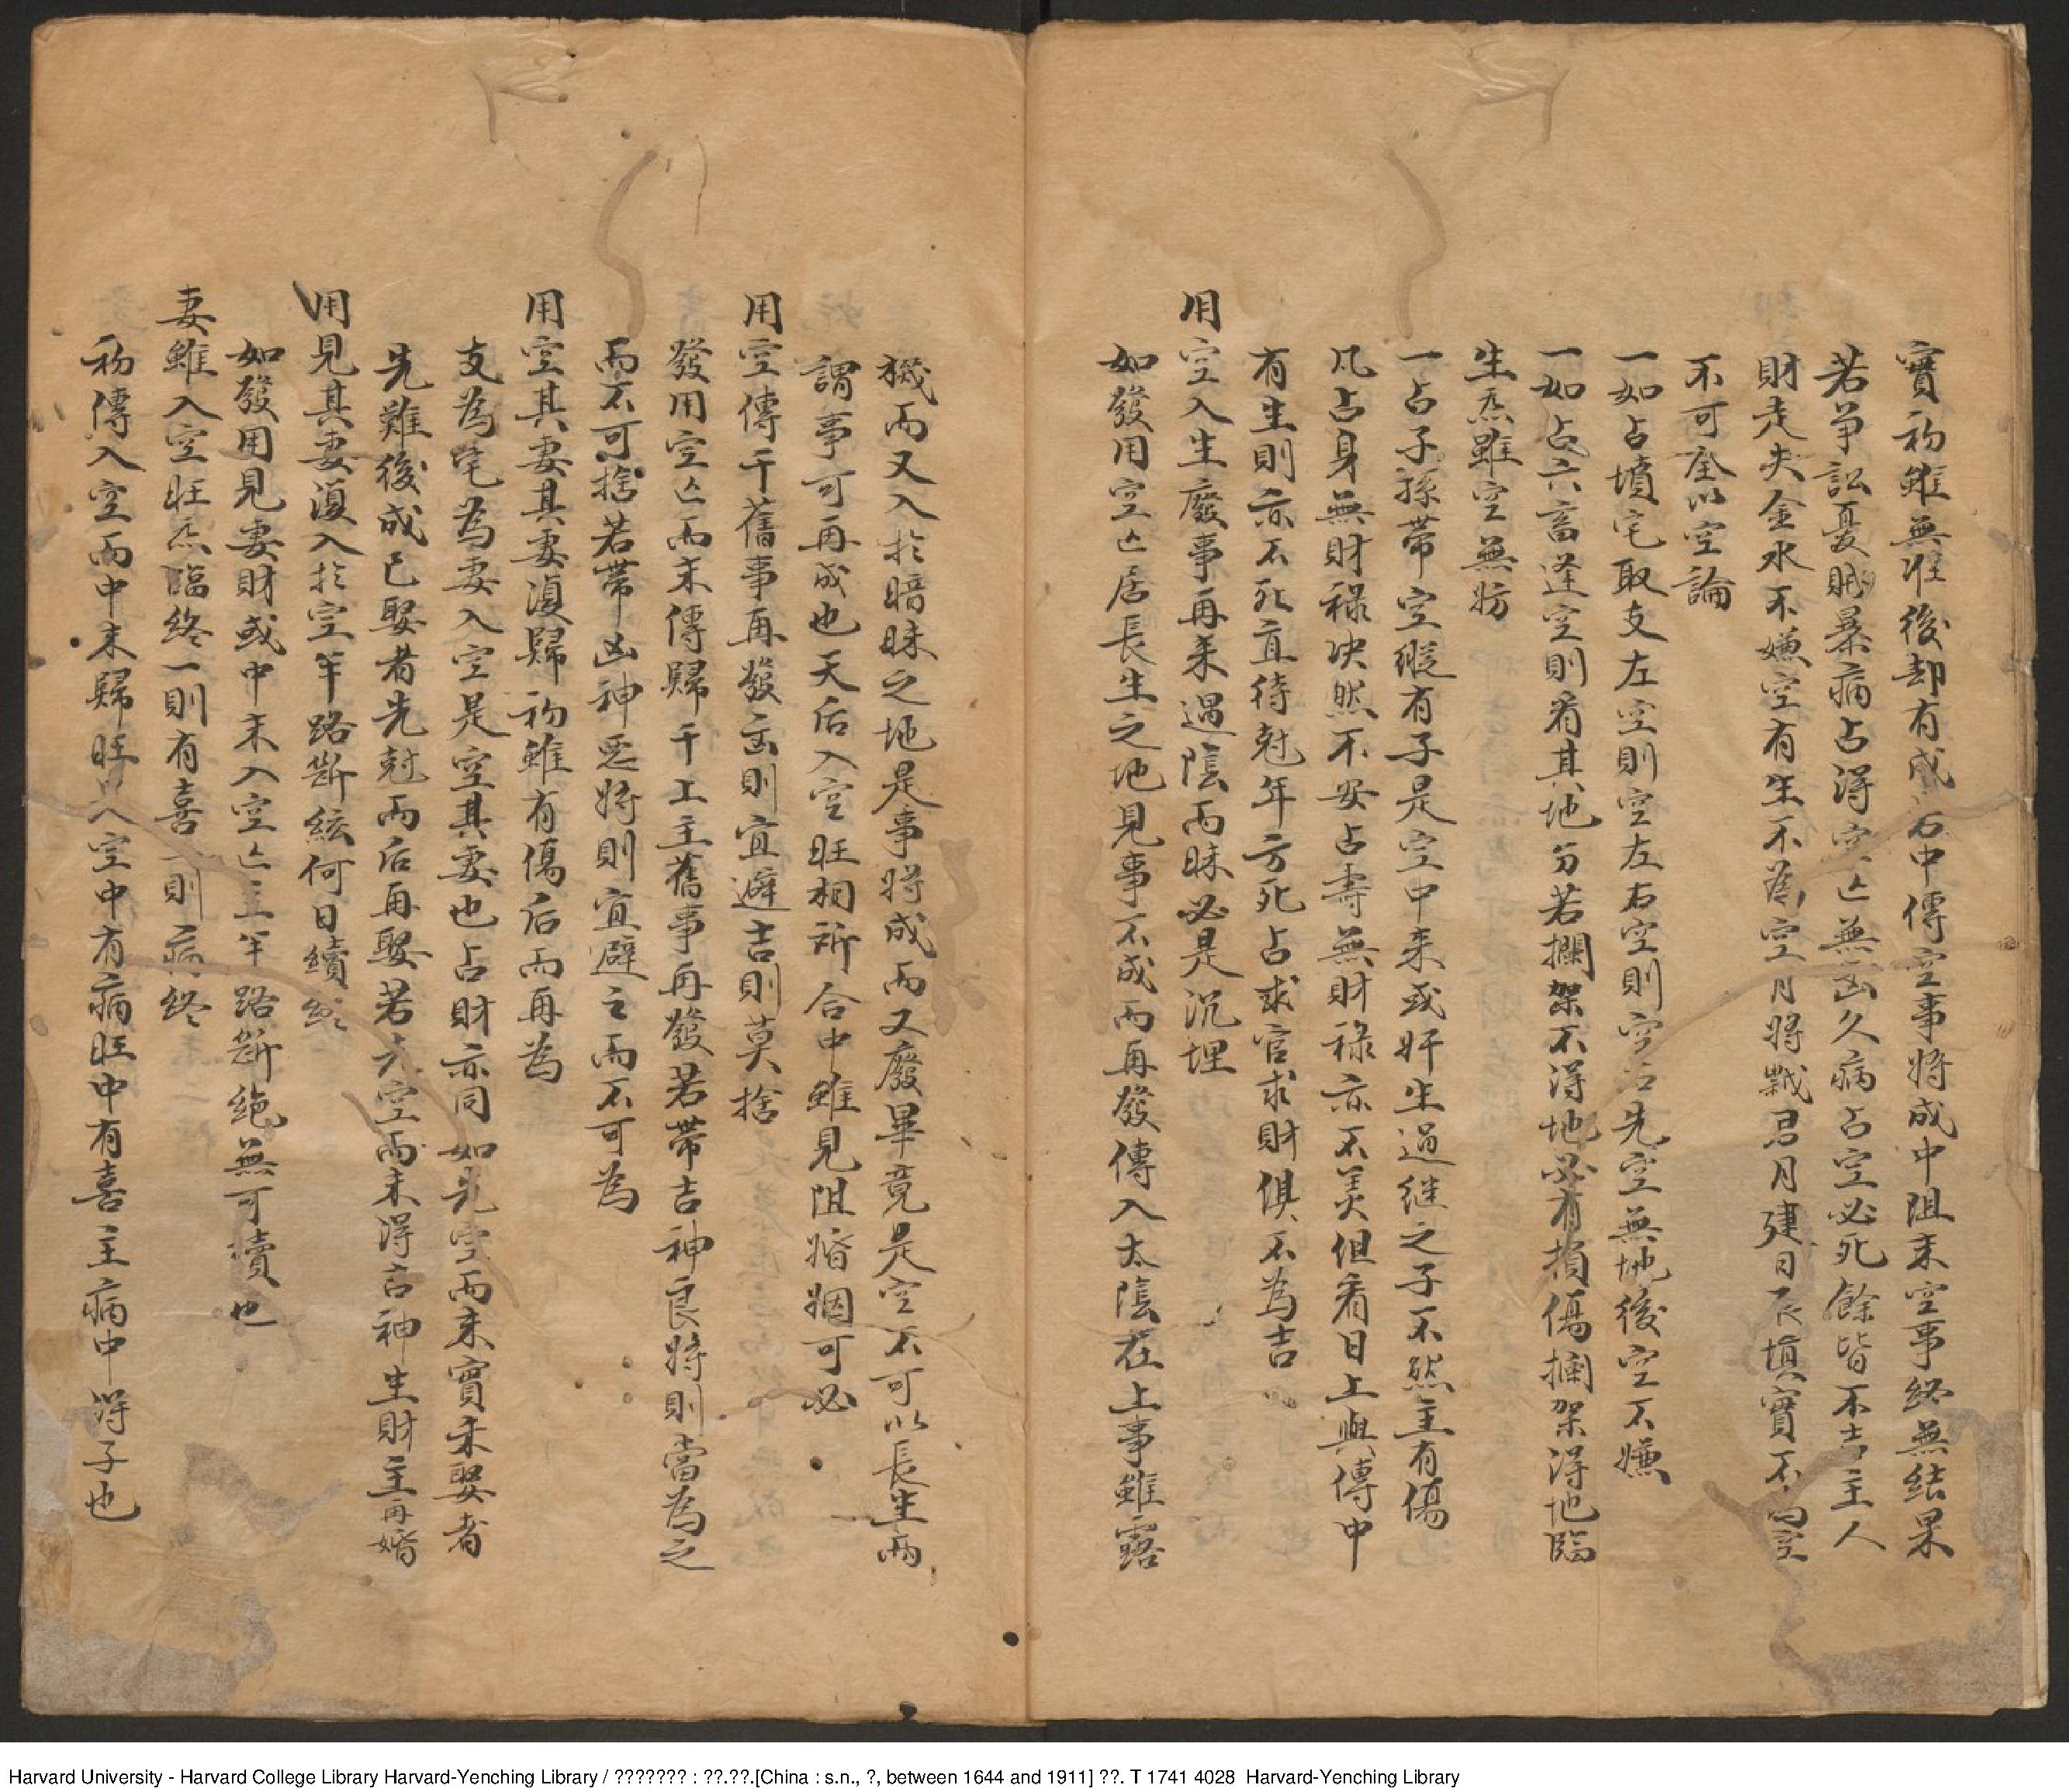 實初雖無准後却有成若中傳空事將成中阻末空事終無結果
若爭訟憂賊暴病占得空亡無凶久病占空必死餘皆不吉主人
財走失金水不嫌空有生不為空月將戰忌月建日辰填實不為空
不可全以空論
一如占墳宅取支左空則空左右空則空右先空無地後空不嫌
一如占六畜逢空則看其地分若攔架不得地必有損傷攔架得地臨
生炁雖空無妨
一占子孫帶空縱有子是空中來或奸生過繼之子不然主有傷
凡占身無財祿决然不安占壽無財祿亦不美但看日上與傳中
有生則亦不死直待尅年方死占求官求財俱不為吉
用空入生廢事再来遇陰而昧必是沉埋
如發用空亡居長生之地見事不成而再發傳入太陰在上事雖露
機而又入於暗昧之地是事將成而又廢畢竟是空不可以長生而
謂事可再成也天后入空旺相祈合中雖見阻婚姻可必
用空傳干舊事再發凶則宜避吉則莫捨
發用空亡而末傳歸干上主舊事再發若帶吉神良將則當為之
而不可捨若帶凶神惡將則宜避之而不可為
用空其妻其妻復歸初雖有傷后而再為
支為宅為妻入空是空其妻也占財亦同如先空而末實未娶者
先難後成已娶者先尅而后再娶若六空而末得吉神生財主再婚
用見其妻復入於空半路斷絃何日續
如發用見妻財或中末入空亡主半路斷絶無可續也
妻雖入空旺炁臨終一則有喜一則病終
初傳入空而中末歸旺是空中有病旺中有喜主病中得子也